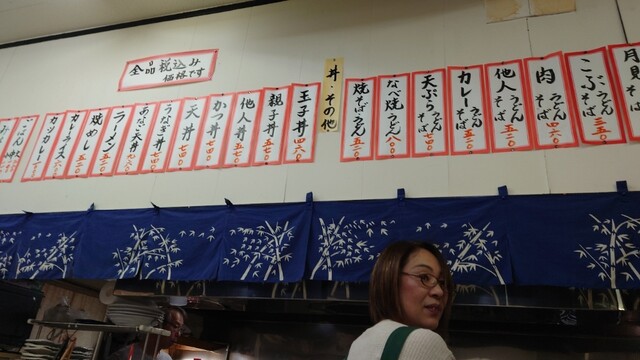 全品税込み
価格です
月見
こぶうどんそば 三五〇
肉うどんそば 四六〇
他人うどんそば 五二〇
カレーうどんそば 五二〇
天ぷらうどんそば 五四〇
なべ焼うどん 八〇〇
焼そばうどん 五二〇
丼・その他
玉子丼 四六〇
親子丼 五七〇
他人丼 五七〇
かつ丼 七四〇
天丼 七四〇
うなぎ丼 七四〇
あなご天丼
ラーメン 五二〇
焼めし 五二〇
カレーライス
カツカレー
ごはん